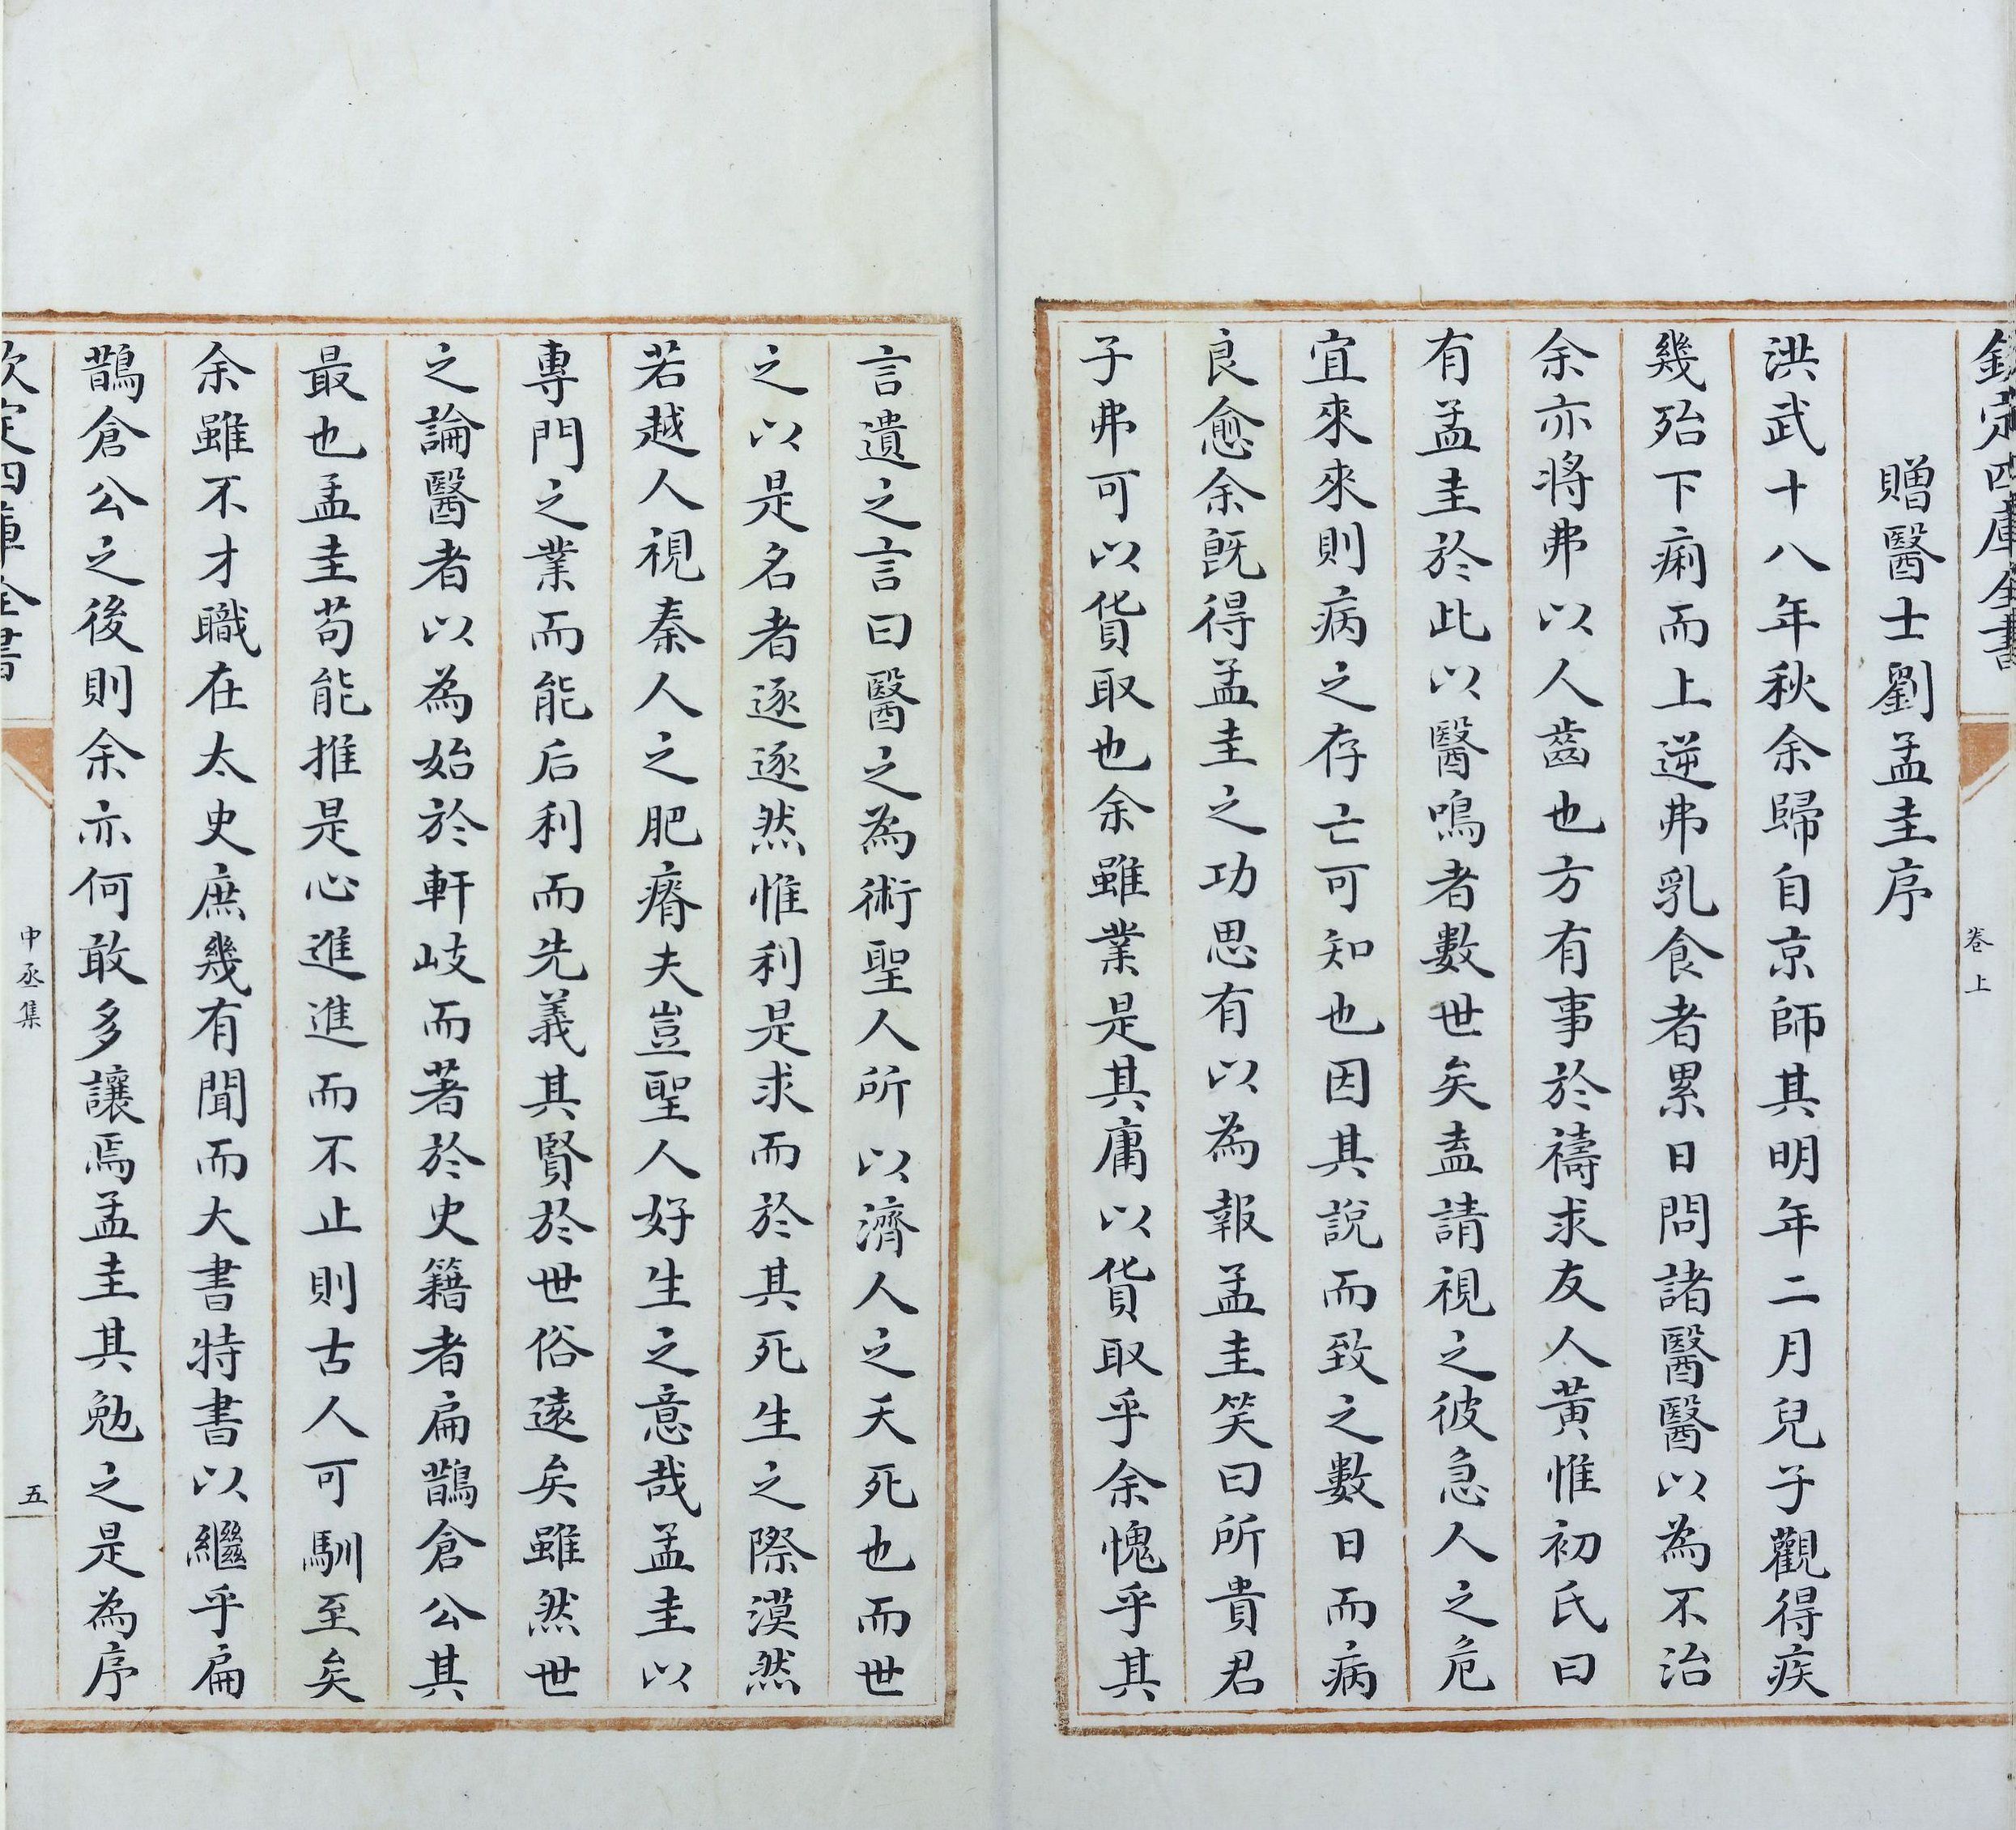 欽定四庫全書
卷上
贈醫士劉孟圭序
洪武十八年秋余歸自京師其明年二月兒子觀得疾
幾殆下痢而上逆弗乳食者累日問諸醫醫以為不治
余亦將弗以人齒也方有事於禱求友人黃惟初氏曰
有孟圭於此以醫鳴者數世矣盍請視之彼急人之危
宜來來則病之存亡可知也因其說而致之數日而病
良愈余既得孟圭之功思有以為報孟圭笑曰所貴君
子弗可以貨取也余雖業是其庸以貨取乎余愧乎其
言遺之言曰醫之為術聖人所以濟人之夭死也而世
之以是名者逐逐然惟利是求而於其死生之際漠然
若越人視秦人之肥瘠夫豈聖人好生之意哉孟圭以
專門之業而能后利而先義其賢於世俗遠矣雖然世
之論醫者以為始於軒岐而著於史籍者扁鵲倉公其
最也孟圭苟能推是心進進而不止則古人可馴至矣
余雖不才職在太史庶幾有聞而大書特書以繼乎扁
鵲倉公之後則余亦何敢多讓焉孟圭其勉之是為序
欽定四庫全書
中丞集
五